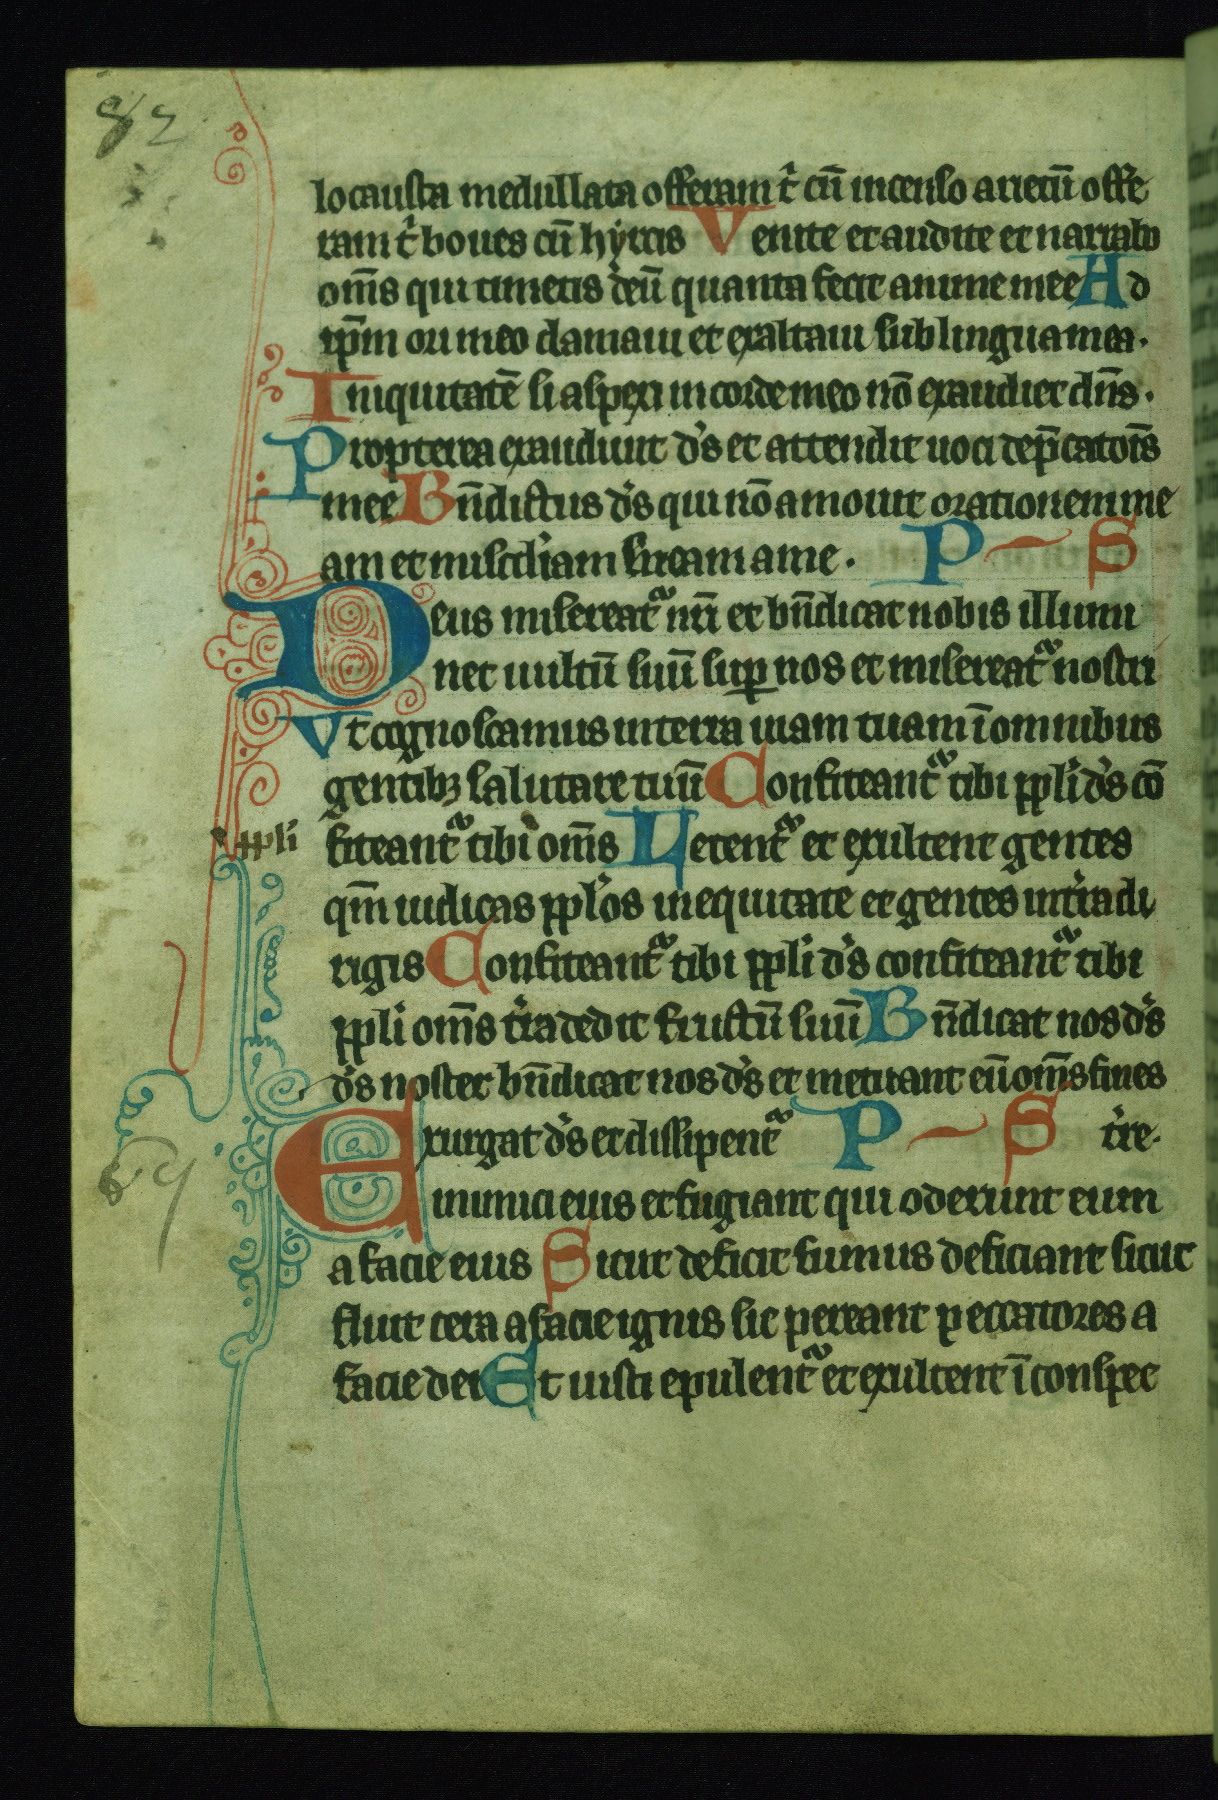 82
locausta medullata offeram t̾ cū incenso arietū offe
ram t̾ boues cū hyrcis Venite et audite et narrabo
om̄s qui timetis deū quanta fecit anime mee Ad
ip̄m ori meo clamaui et exaltaui sub lingua mea.
Iniquitatē si aspexi in corde meo nō exaudiet dn̄s.
Propterea exaudiuit d's et attendit uoci dep̄catois
mee Bn̄dictus d's qui nō amouit orationem me
am et misc̄diam suam a me. P S
Deus misereatᵃ nr̄i et bn̄dicat nobis illumi
net uultū suū suꝑ nos et misereatᵃ nostri
Vt cognoscamus in terra uiam tuam ī omnibus
gentibꝫ salutare tuū Confiteantᵃ tibi ppl'i d's cō
ppl'i
fiteantᵃ tibi om̄s Letentᵃ et exultent gentes
qm̄ iudicas ppl'os in equitate et gentes in t'ra di
rigis Confiteantᵃ tibi ppl'i d's confiteantᵃ tibi
ppl'i om̄s t'ra dedit fructū suū Bn̄dicat nos d's
d's noster bn̄dicat nos d's et metuant eū om̄s fines
Exurgat d's et dissipentᵃ P S t're.
inimici eius et fugiant qui oderunt eum
a facie eius Sicut deficit fumus deficiant sicut
fluit cera a facie ignis sic pereant peccatores a
facie dei Et iusti epulentᵃ et exultent ī conspec